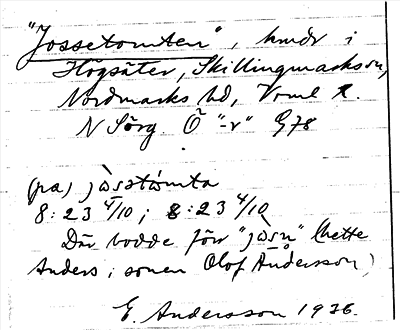 "Jossetomten", hmdr i
Högsäter, Skillingmarks sn,
Nordmarks hd, Vrml l.
N Sörg. Ö "-r" G78
(pa) jòsstòmta
8:23 4/10; 8:23 4/10
Där bodde förr "jòsn" (hette
Anders; sonen Olof Andersson)
E. Andersson 1936.